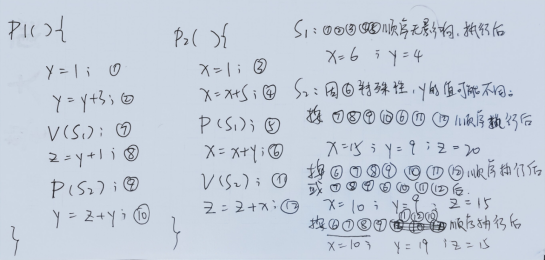 P1( ){
y=1; ①
y=y+3; ②
V(S1); ⑦
z=y+1; ⑧
P(S2); ⑨
y=z+y; ⑩
}
P2( ){
x=1; ③
x=x+5; ④
P(S1); ⑤
x=x+y; ⑥
V(S2); ⑪
z=z+x; ⑫
}
S1: ①②③④⑤顺序无影响,执行后
x=6 ; y=4
S2: 因⑥特殊性, y的值可能不同。
按 ⑦⑧⑨⑩⑥⑪⑫顺序执行后
x=15 ; y=9 ; z=20
按⑥⑦⑧⑨⑩⑪⑫顺序执行后
或⑦⑧⑨⑥⑩⑪⑫后
x=10 ; y=9 ; z=15
按⑥⑦⑧⑨⑪⑫⑩顺序执行后
x=10; y=19 ; z=15